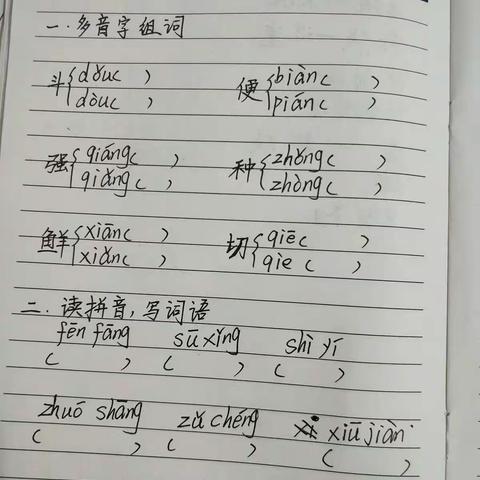 一.多音字组词
斗{dǒu( ) 便{biàn( )
dòu( ) pián( )
强{qiáng( ) 种{zhǒng( )
qiǎng( ) zhòng( )
鲜{xiān( ) 切{qiē( )
xiǎn( ) qie( )
二.读拼音,写词语
fēn fāng sū xǐng shì yí
( ) ( ) ( )
zhuó shāng zǔ chéng xiū jiàn
( ) ( ) ( )